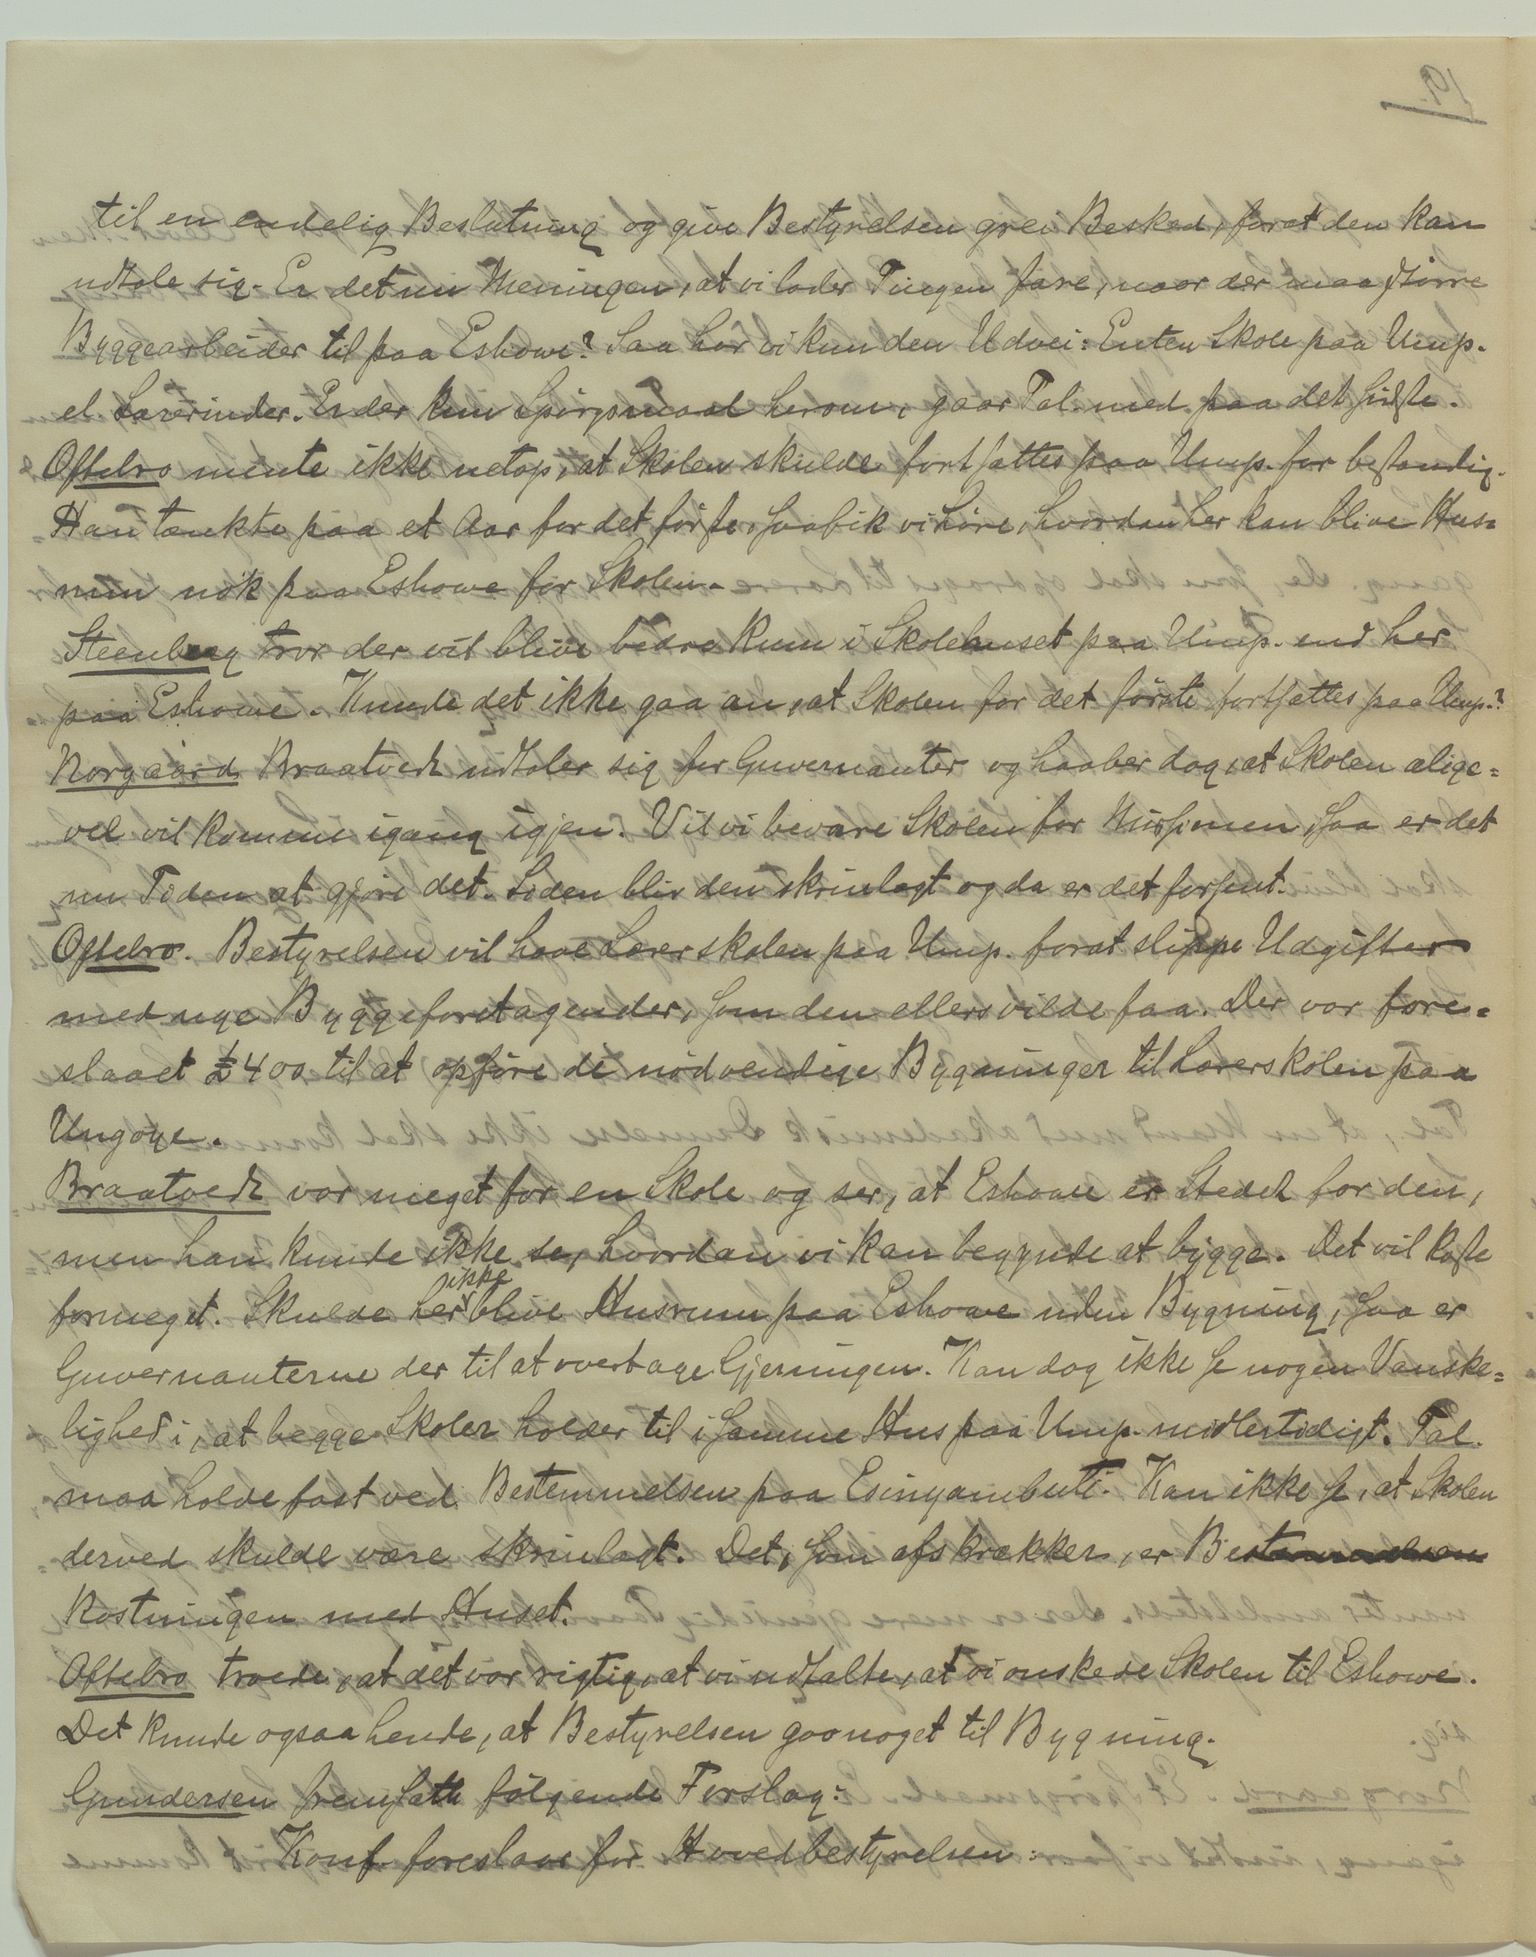 til en endelig Beslutning og give Bestyrelsen grei Besked, forat den kan
udtale sig. Er det nu Meningen, at vi lader Tingen fare, naar der maa større
Byggearbeider til paa Eshowe? Saa har vi kun den Udvei: Enten Skole paa Ump.
el Lærerinder. Er der kun Spørgsmaal herom, gaar Tal. med paa det sidste.
Oftebro mente ikke netop, at Skolen skulde fortsættes paa Ump. for bestandig.
Han tænkte paa et Aar for det første, saa fik vi høre, hvordan her kan blive Hus=
rum nok paa Eshowe for Skolen.
Steenberg tror der vil blive bedre Rum i Skolehuset paa Ump. end her
paa Eshowe. Kunde det ikke gaa an, at Skolen for det første fortsættes paa Ump.?
Norgaard Braatvedt udtaler sig for Guvernanter og haaber dog, at Skolen alige=
vel vil komme igang igjen. Vil vi bevare Skolen for Missionen, saa er det
nu Tiden at gjøre det. Siden blir den skrinlagt og da er det forsent.
Oftebro. Bestyrelsen vil have Lærerskolen paa Ump. forat slippe Udgifter
med nye Byggeforetagender, som den ellers vilde faa. Der var fore=
slaaet £400 til at opføre de nødvendige Bygninger til Lærerskolen paa
Ungoye.
Braatvedt var meget for en Skole og ser, at Eshowe er Stedet for den,
men han kunde ikke se, hvordan vi kan begynde at bygge. Det vil koste
formeget. Skulde her ikke blive Husrum paa Eshowe uden Bygning, saa er
Guvernanterne der til at overtage Gjerningen. Kan dog ikke se nogen Vanske=
lighed i, at begge Skoler holder til i samme Hus paa Ump. midlertidigt. Tal.
maa holde fast ved Bestemmelsen paa Esinyambuti. Kan ikke se, at Skolen
derved skulde være skrinlagt. Det, som afskrækker, er Bestemmelsen
Kostningen med Huset.
Oftebro troede, at det var rigtig, at vi udtalte, at vi ønskede Skolen til Eshowe.
Det kunde ogsaa hende, at Bestyrelsen gav noget til Bygning.
Gundersen fremsatte følgende Forslag:
Konf. foreslaar for Hovedbestyrelsen: